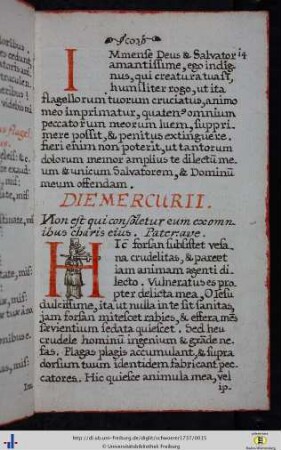 IMmense Deus & Salvator 14
amantissime, ego indig-
nus, qui creatura tua s̄,
humiliter rogo, ut ita
flagellorum tuorum cruciatus, animo
meo imprimatur, quaten9 omnium
peccatorum meorum luem, suppri-
mere possit, & penitus extinguere.
fieri enim non poterit, ut tantorum
dolorum memor amplius te dilectū me-
um & unicum Salvatorem, & Dominū
meum offendam.
DIE MERCURII.
Non est qui consoletur eum ex omni-
bus charis eius. Pater: ave.
HIc forsan subsistet vesa-
na crudelitas, & pareet
iam animam agenti di-
lecto. Vulneratus es pro-
pter delicta mea, O Iesu
dulcissime, ita ut nulla in te sit sanitas,
jam forsan mitescet rabies, & effera mēs
sævientium sedata quiescet. Sed heu
crudele hominū ingenium & grāde ne-
fas. Plagas plagis accumulant, & supra
dorsum tuum identidem fabricant pec-
catores. Hic quiesce animula mea, vel
ip.
http://dl.ub.uni-freiburg.de/diglit/schwoerer1737/0035
© Universitätsbibliothek Freiburg